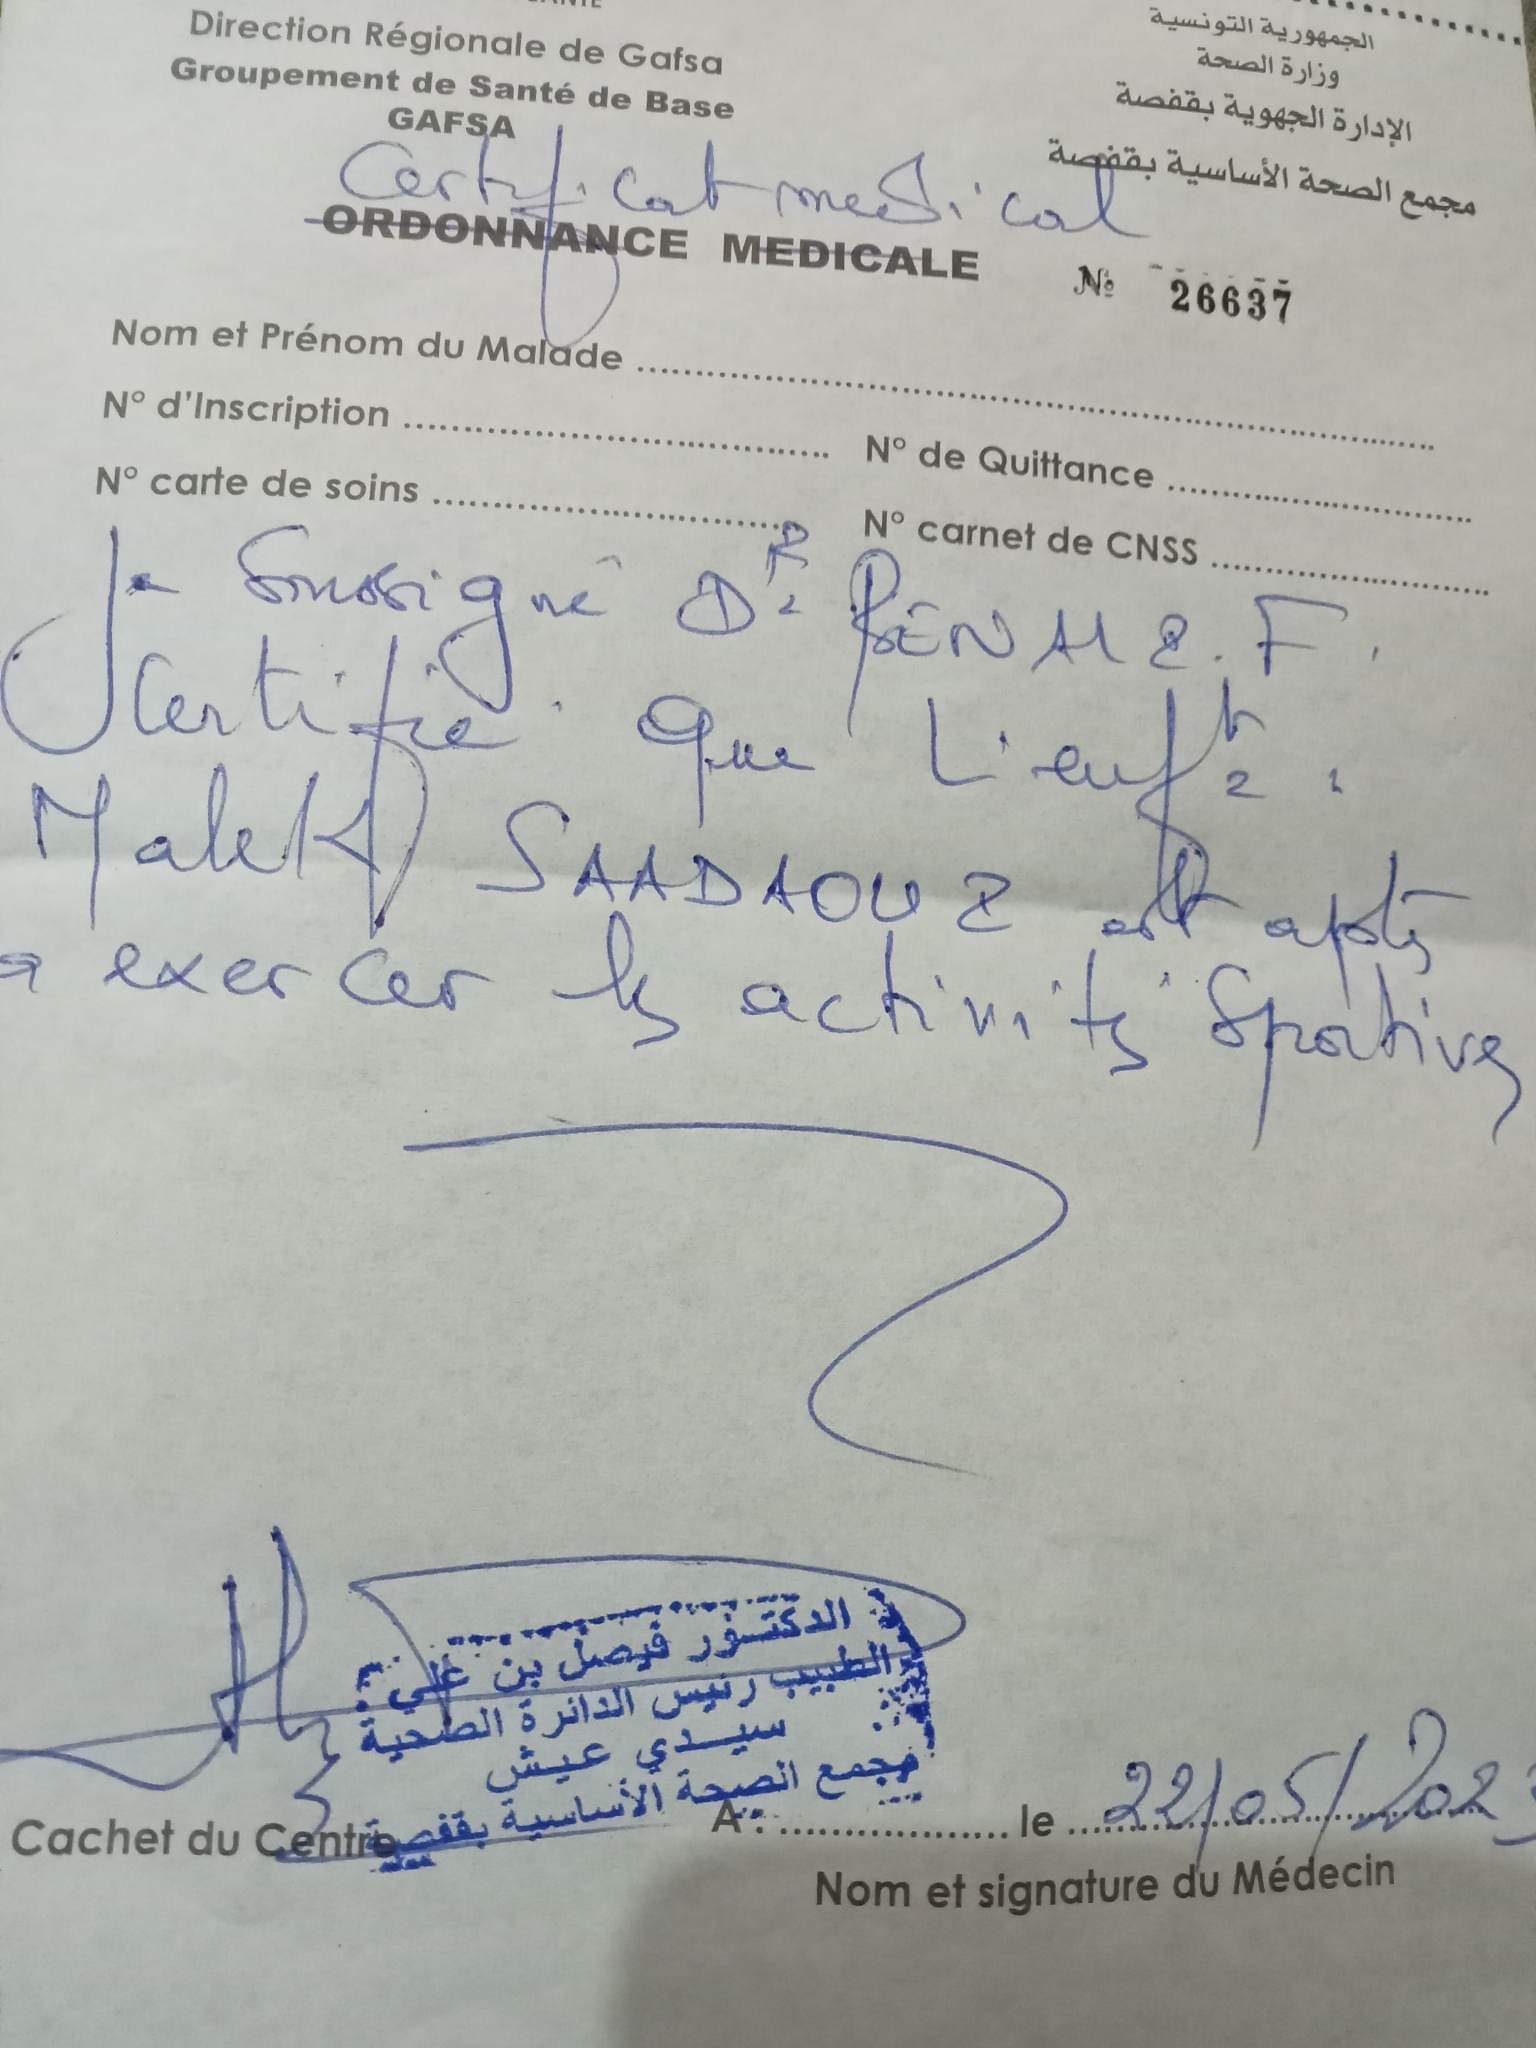 Direction Régionale de Gafsa
Groupement de Santé de Base
GAFSA
الجمهورية التونسية
وزارة الصحة
الإدارة الجهوية بقفصة
مجمع الصحة الأساسية بقفصة
Certificat medical
ORDONNANCE MEDICALE
№ 26637
Nom et Prénom du Malade
N° d'Inscription
N° de Quittance
N° carte de soins
N° carnet de CNSS
Je Soussigné Dr BENALI. F.
Certifie que L'enft
Malek SAADAOUI est apte
a exercer les activités Sportives
الدكتور فيصل بن علي
الطبيب رئيس الدائرة الصحية
سيدي عيش
مجمع الصحة الأساسية بقفصة
Cachet du Centre
A : le 22/05/2023
Nom et signature du Médecin